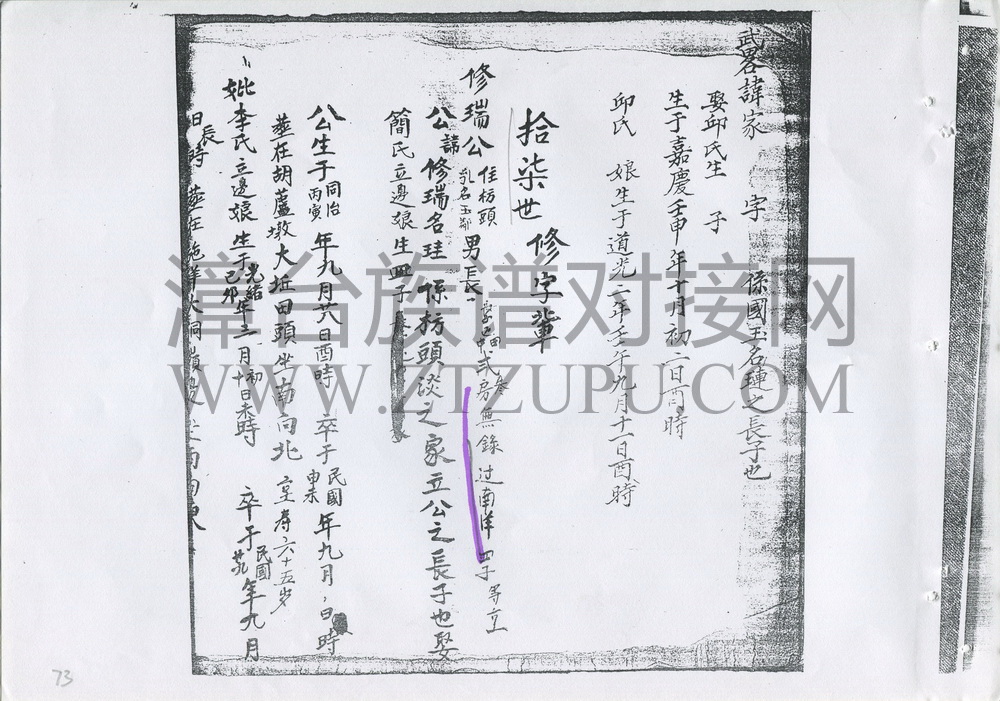 武畧諱家 字 係國玉名璉之長子也
娶邱氏生 子
生于嘉慶壬申年十月初二日酉時
邱氏 娘生于道光二年壬午九月十一日酉時
拾柒世 修字輩
修瑞公 住枋頭 乳名玉 男長 弍房無錄过南洋 四子等立
公諱修瑞名珪係枋頭 之家立公之長子也娶
簡氏立邊娘生四子
公生于同治丙寅年九月廿八日酉時 卒于民國辛未年九月 日時
葬在胡蘆墩大坵田頭坐南向北 享寿六十五岁
妣李氏立邊娘生于光緒己卯年二月初十日未時 卒于民國 年九月
日長時 葬在 洋火洞 邊坐
漳台族谱对接网
WWW.ZTZUPU.COM
73